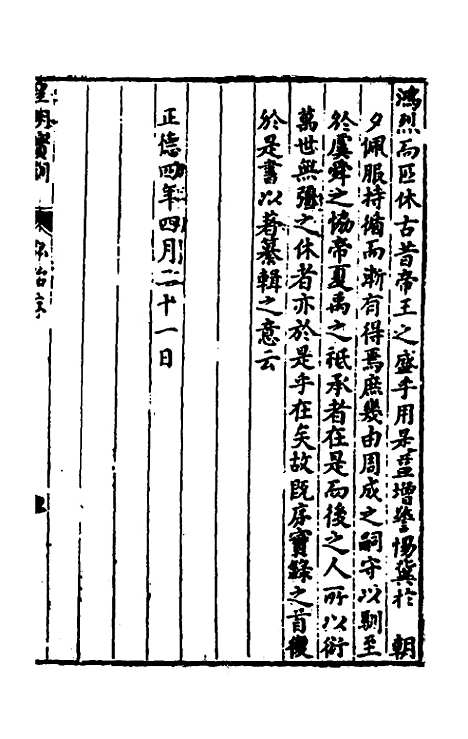 鴻烈而匹休古昔帝王之盛乎用是益增警惕冀於朝
夕佩服持循而漸有得焉庶幾由周成之嗣守以馴至
於虞舜之協帝夏禹之祗承者在是而後之人所以衍
萬世無疆之休者亦於是乎在矣故既序實錄之首復
於是書以著纂輯之意云
正德四年四月二十一日
皇明寳訓
弘治序